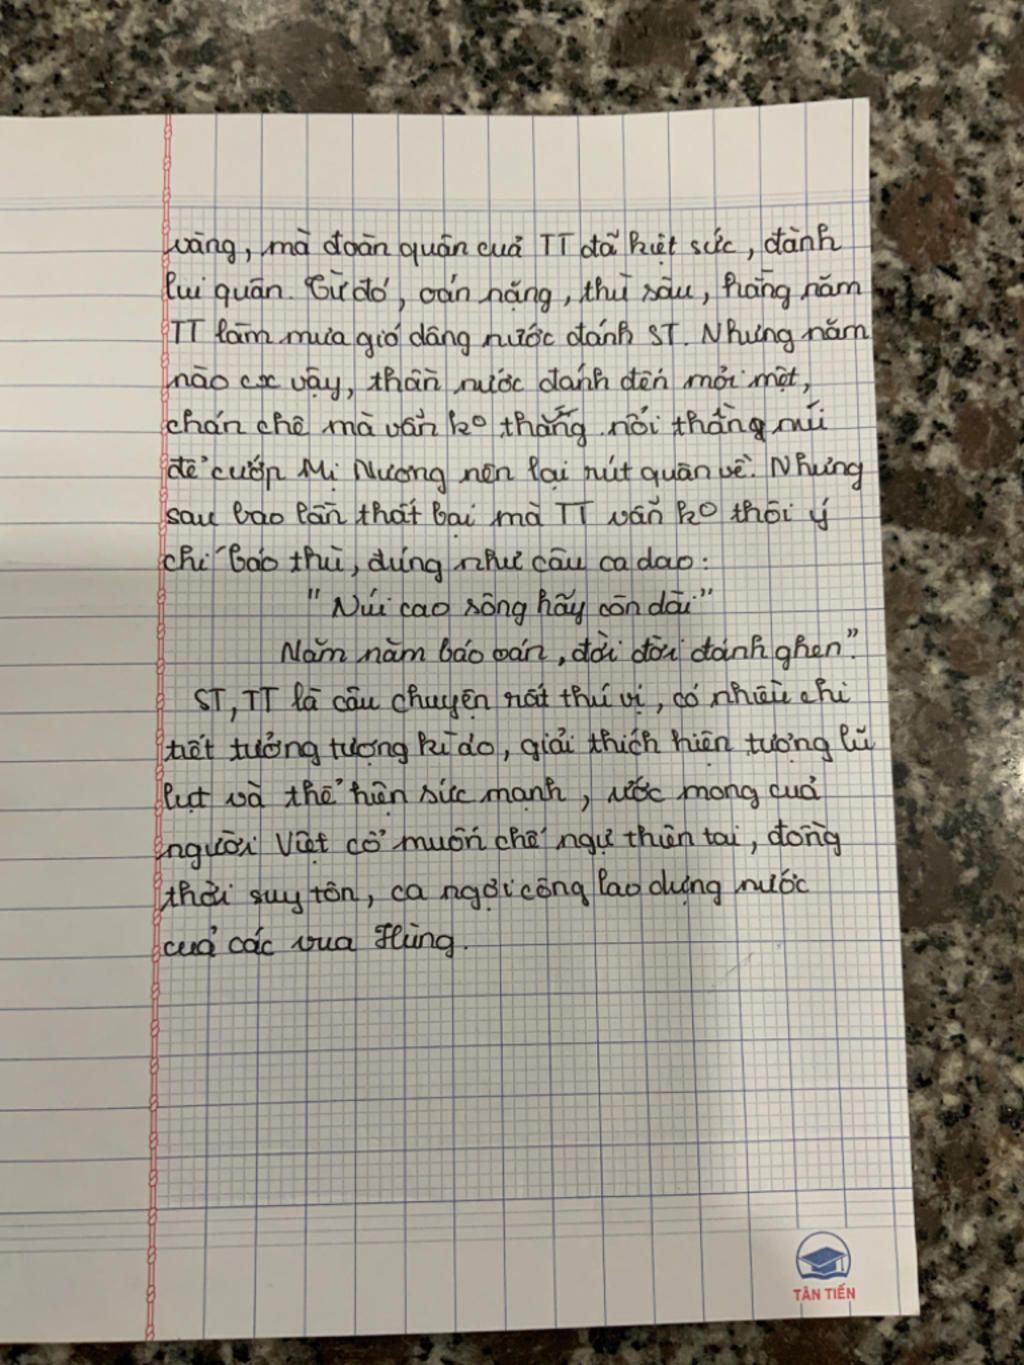 vàng, mà đoàn quân của TT đã kiệt sức, đành
lui quân. Từ đó, oán nặng, thù sâu, hằng năm
TT làm mưa gió dâng nước đánh ST. Nhưng năm
nào cx vậy, thần nước đánh đến mỏi mệt,
chán chê mà vẫn ko thắng nổi thần núi
để cướp Mị Nương nên lại rút quân về. Nhưng
sau bao lần thất bại mà TT vẫn ko thôi ý
chí báo thù, đúng như câu ca dao:
"Núi cao sông hãy còn dài"
Năm năm báo oán, đời đời đánh ghen".
ST, TT là câu chuyện rất thú vị, có nhiều chi
tiết tưởng tượng kì ảo, giải thích hiện tượng lũ
lụt và thể hiện sức mạnh, ước mong của
người Việt cổ muốn chế ngự thiên tai, đồng
thời suy tôn, ca ngợi công lao dựng nước
của các vua Hùng.
TÂN TIẾN